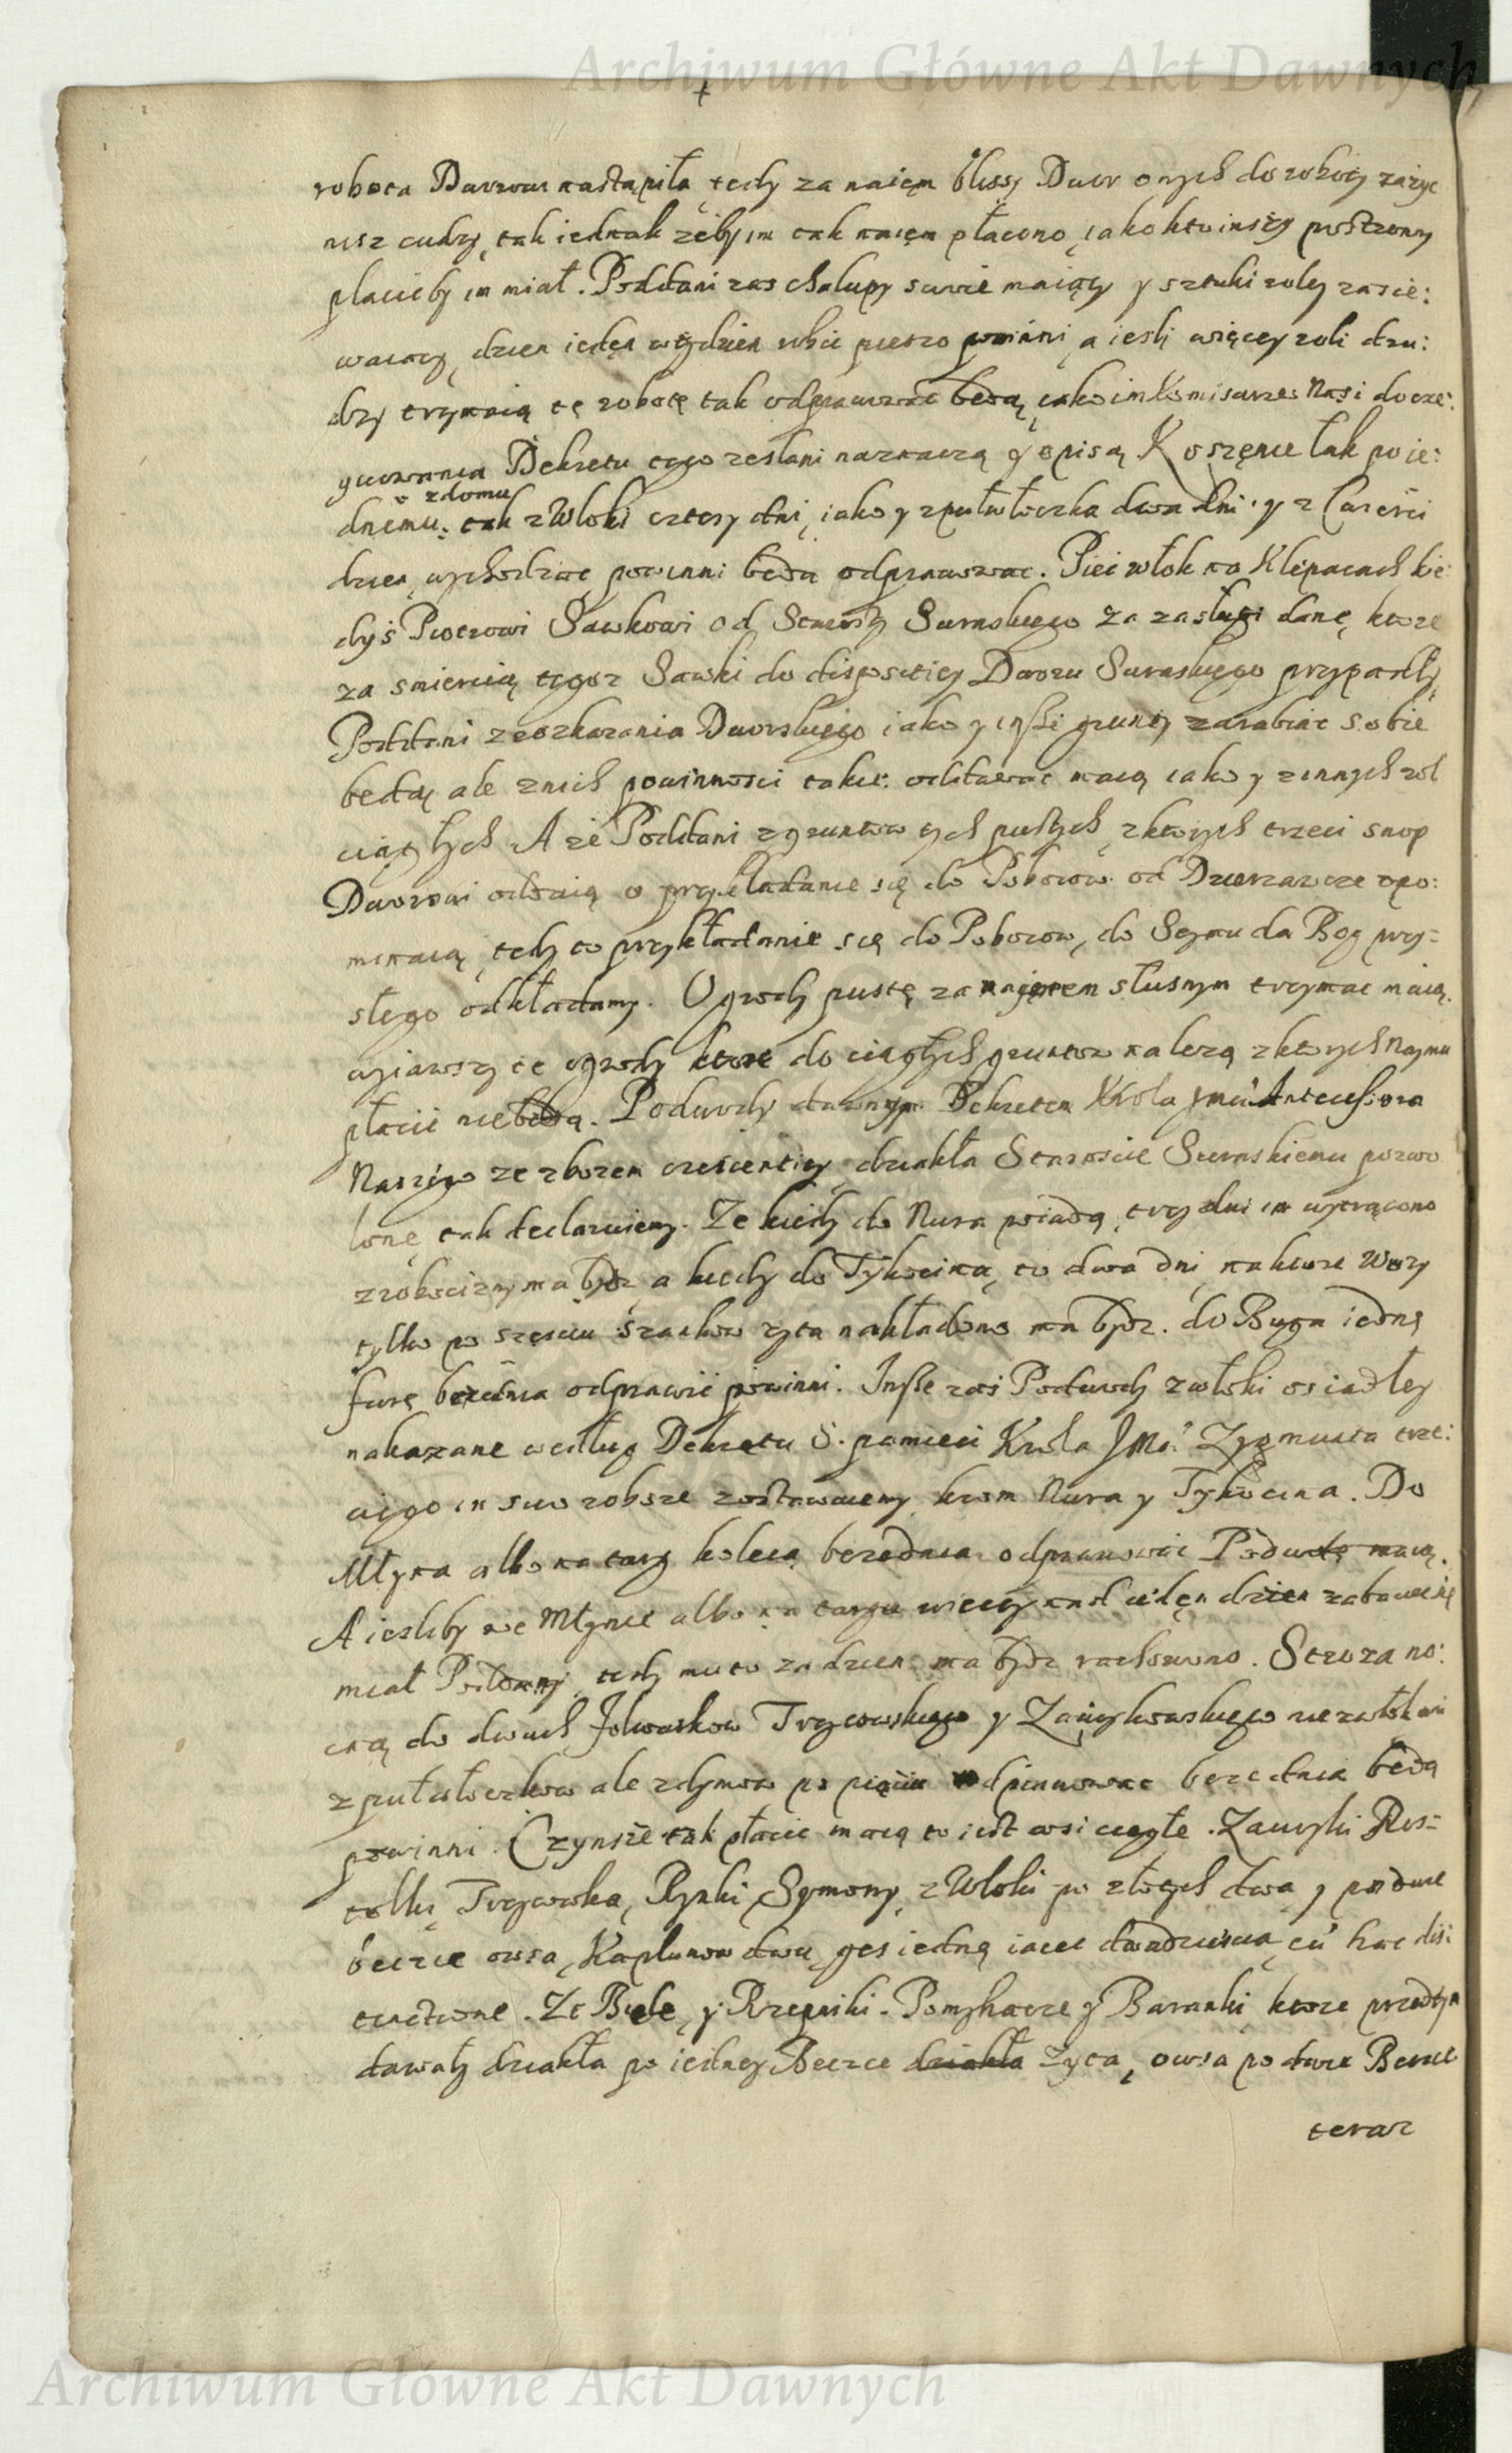 Archiwum Główne Akt Dawnych
robota Dworowi nastąpiła, tedy za naięm bliszy Dwor onych do roboty zażyc
nisz cudzy, tak iednak żeby im tak naięm płacono, iako kto inszy postronny
płaciłby im miał. Poddani zas chałupy swoie maiący y sztuki roley zasie:
waiący, dzien ieden w tydzien robic pieszo powinni, a iesli więcey roli dru:
dzy trzymaią tę robotę tak odprawowac będą, iako im Komisarze Nasi do exe:
quowania Dekretu tego zesłani naznaczą y opisą Koszęnie tak po ie:
z domu
dnemu, tak z Włoki cztery dni, iako y z pułwłoczka dwa dni y z Cwierci
dzien, wychodzic powinni będą odprawowac. Pięc włok na Klepaczach kie
dyś Piotrowi Sawkowi od Starosty Suraskiego za zasługi danę, ktore
za smiercią tegoz Sawki do dispositiey Dworu Suraskięgo przypadły,
Poddani z rozkazania Dworskięgo iako y inszi grunty zarabiac sobie
będą ale z nich powinnosci takie oddawac maią iako y z innych rol
ciągłych A że Poddani z gruntow tych pustych, z ktorych trzeci snop
Dworowi odďaią o przykładanie się do Poborow od Dzierzawcze upo:
minaią, tedy to przykładanie się do Poborow, do Seymu da Bog przy=
słego odkładamy. Ogrody pustę za naięmem słusnym trzymac maią.
wyiąwszy te ogrody ktore do ciągłych gruntow nalezą z ktorych Naymu
płacic nie będą. Podwody dawnym Dekretem Krola Jmci Antecessora
Naszego ze zbozem crescentiey, dziakła Staroscie Suraskiemu pozwo
lonę tak declaruiemy. Ze kiedy do Nura poiadą, trzy dni im wytrącono
z robocizny ma bydz, a kiedy do Tykocina, to dwa dni, na ktore Wozy
tylko po szęsciu szankow zyta nakładono ma bydz. do Buga iednę
furę bezednia odprawic powinni. Insze zas Podwody z włoki osiadłey
nakazane według Dekretu S. pamieci Krola JMci Zygmunta trze:
ciego in suo robore zostawuiemy krom Nura y Tykocina. Do
Młyna albo na targ koleią bezednia odprawowac Podwodę maią.
A iesliby we Młynie albo na targu więcey nad ieden dzien zabawic się
miał Poddany, tedy mu to za dzien ma bydz rachowano. Stroza no:
cną do dwuch folwarkow Tryczowskiego y Zawykowskięgo nie z włok ani
z pułwłoczkow ale z dymow po pięciu odprawowac bezednia będą
powinni. Czynsże tak płacic maią to iest wsi ciągłe. Zawyki Ros=
tołki, Tryczowka, Rynki Szymony, z Włoki po złotych dwa y po dwie
beczce owsa, Kapłunow dwu, gęs iedną iaiec dwadziescia, cu hac dis:
tinctione. Ze Biele, y Rzepniki. Pomykacze y Baranki ktore przedtym
dawały dziakła po iedney Beczce dziakła Zyta, owsa po dwie Beczce
teraz
Archiwum Główne Akt Dawnych